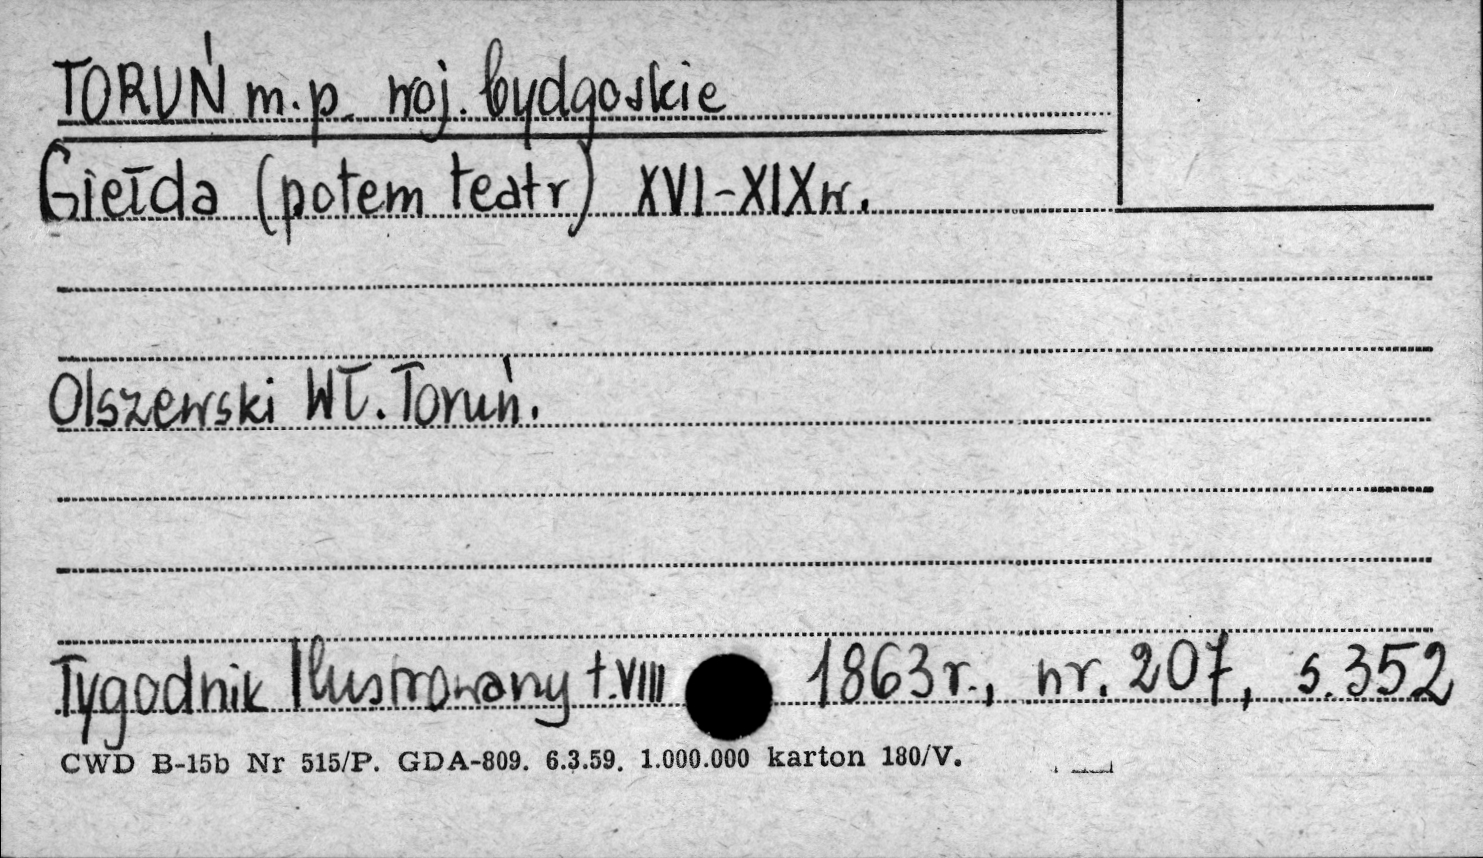 TORUŃ m.p. woj. bydgoskie
Giełda (potem teatr) XVI-XIXw.
Olszewski Wł. Toruń.
Tygodnik Ilustrowany t.VIII 1863r., nr. 207, s.352
CWD B-15b Nr 515/P. GDA-809. 6.3.59. 1.000.000 karton 180/V.